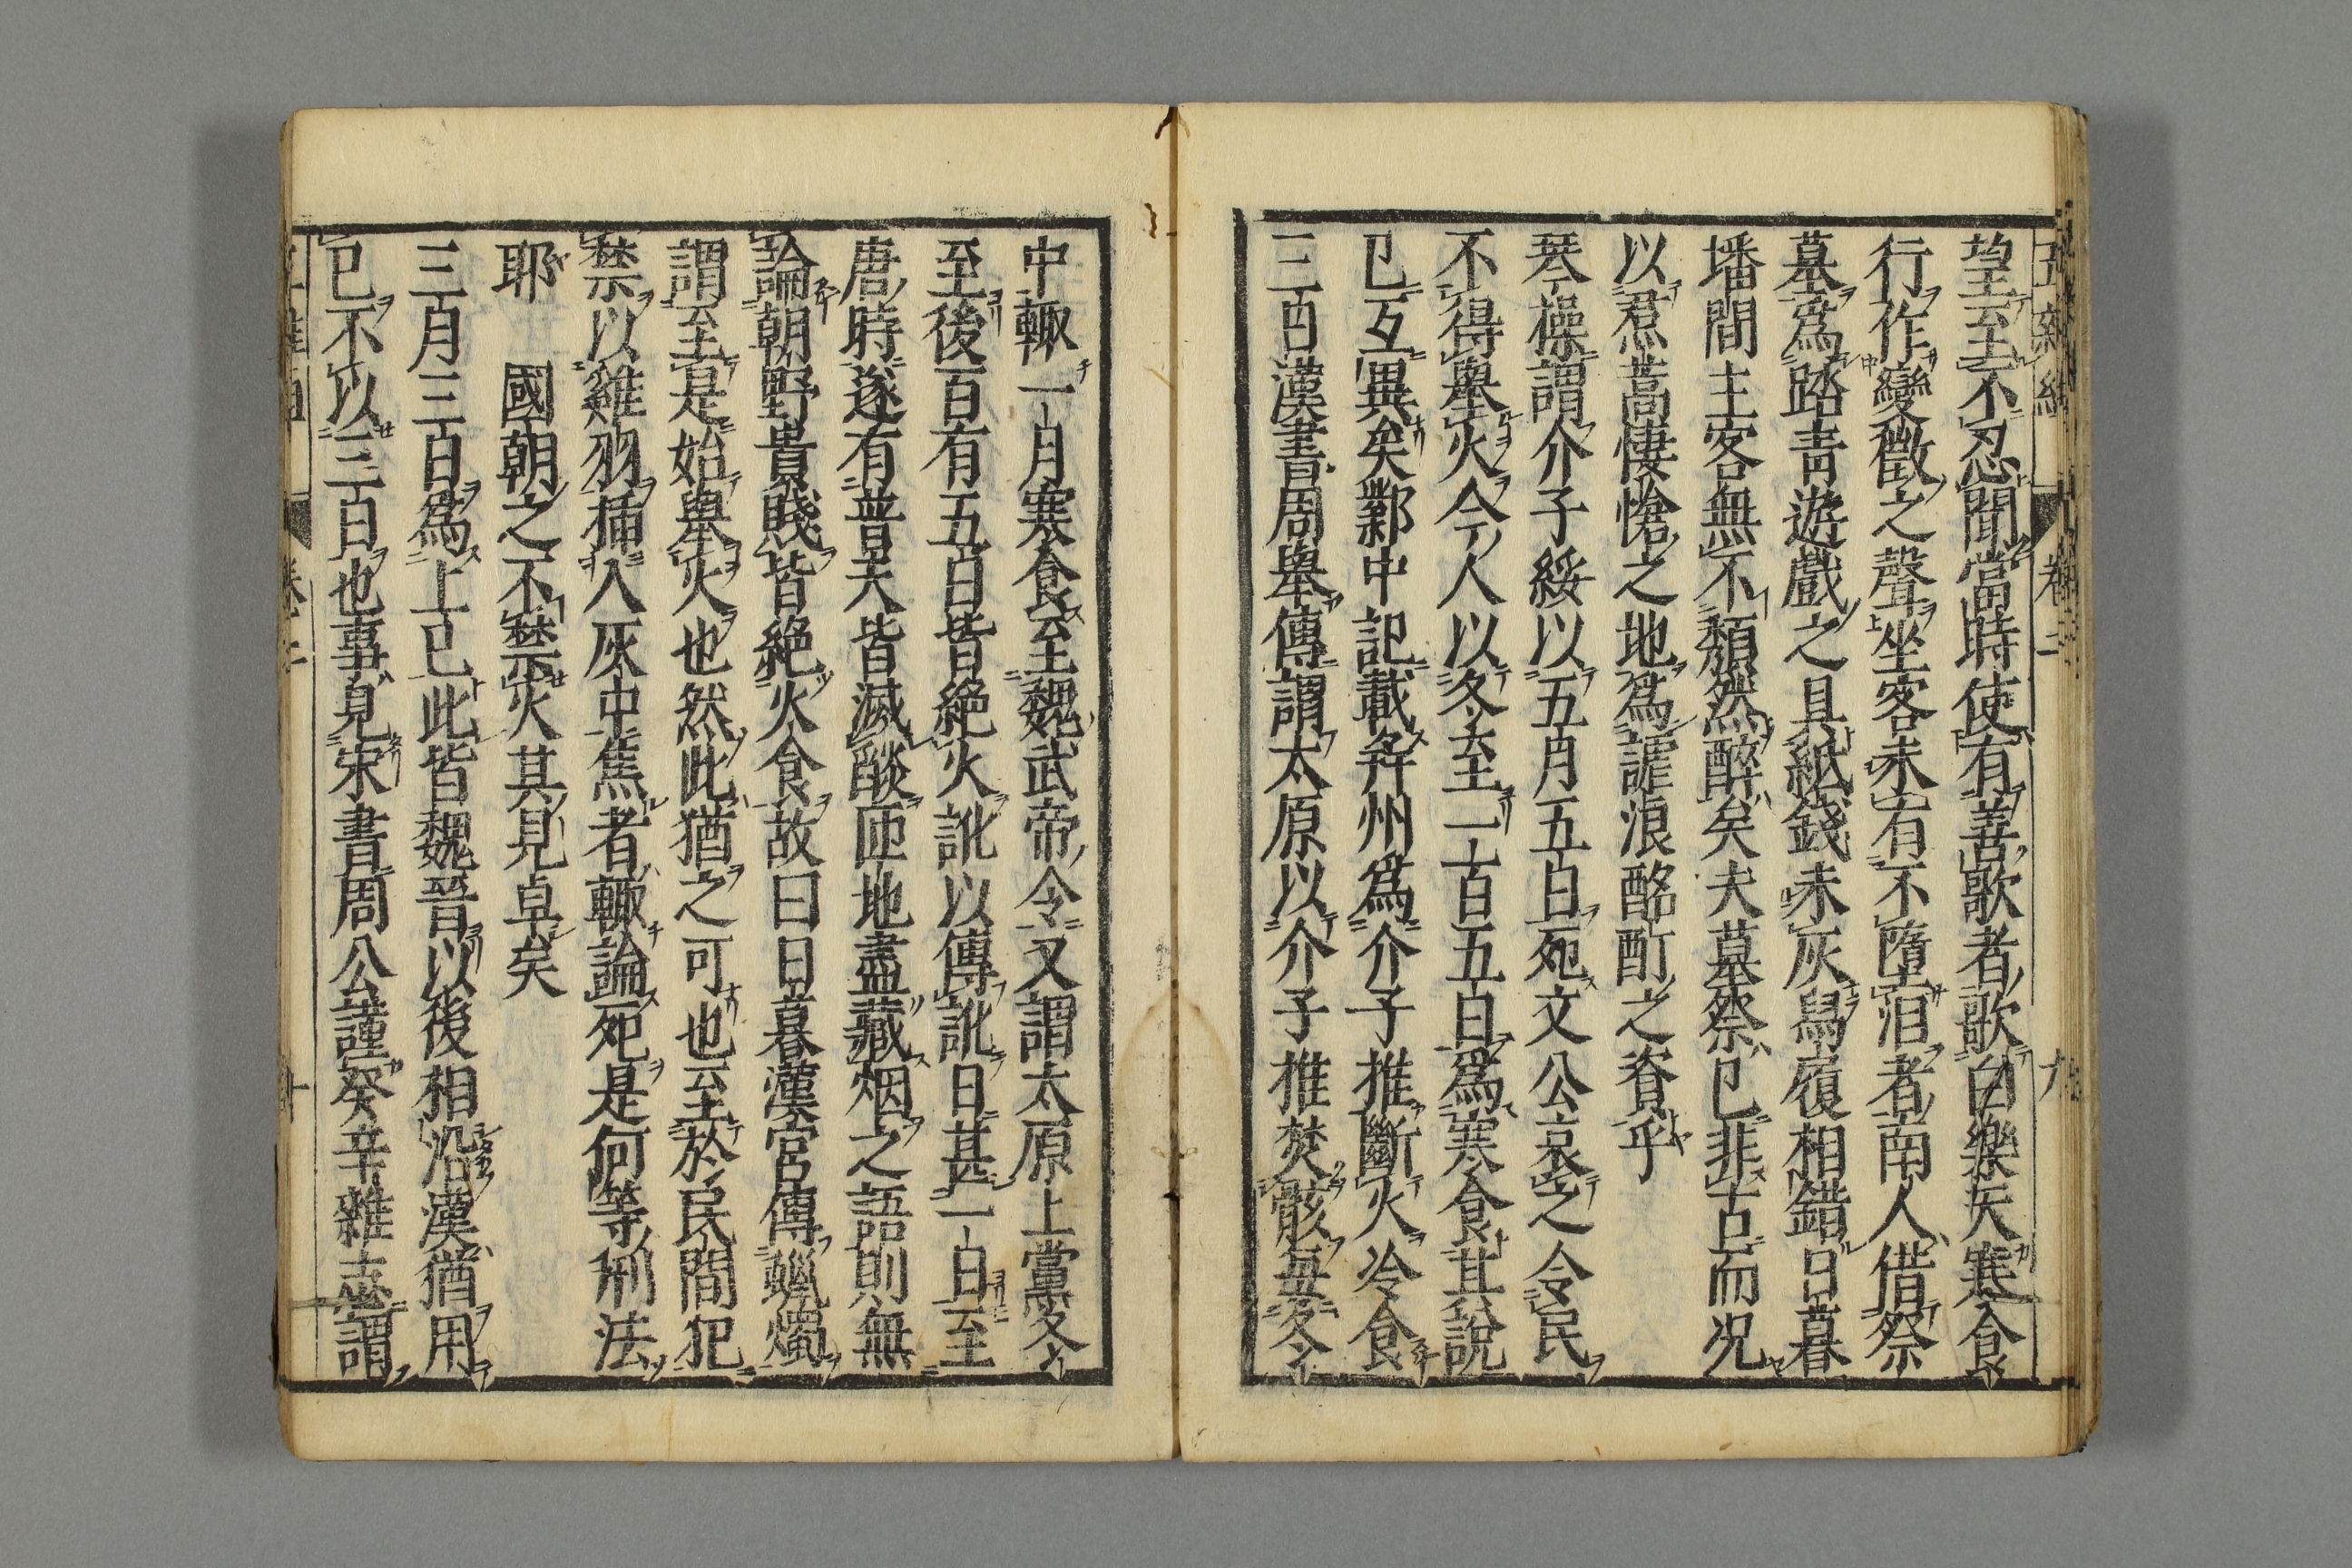 望至不忍聞當時使有善歌者歌白樂天寒食
行作變徵之聲坐客未有不墮淚者南人借祭
墓爲踏青遊戲之具紙錢未灰舄履相錯日暮
墦間主客無不頹然醉矣夫墓祭已非古而况
以焄蒿悽愴之地爲謔浪酩酊之資乎
琴操謂介子綏以五月五日死文公哀之令民
不得舉火今人以冬至一百五日爲寒食其說
已互異矣鄴中記載并州爲介子推斷火冷食
三日漢書周舉傳謂太原以介子推焚骸每冬
中輙一月寒食至魏武帝令又謂太原上黨冬
至後百有五日皆絶火訛以傳訛日甚一日至
唐時遂有普天皆滅燄匝地盡藏烟之語則無
論朝野貴賤皆絶火食故曰日暮漢宮傳蠟燭
謂至是始舉火也然此猶之可也至於民間犯
禁以雞羽插入灰中焦者輙論死是何等刑法
耶　國朝之不禁火其見卓矣
三月三日爲上巳此皆魏晉以後相沿漢猶用
巳不以三日也事見宋書周公謹癸辛雜志謂